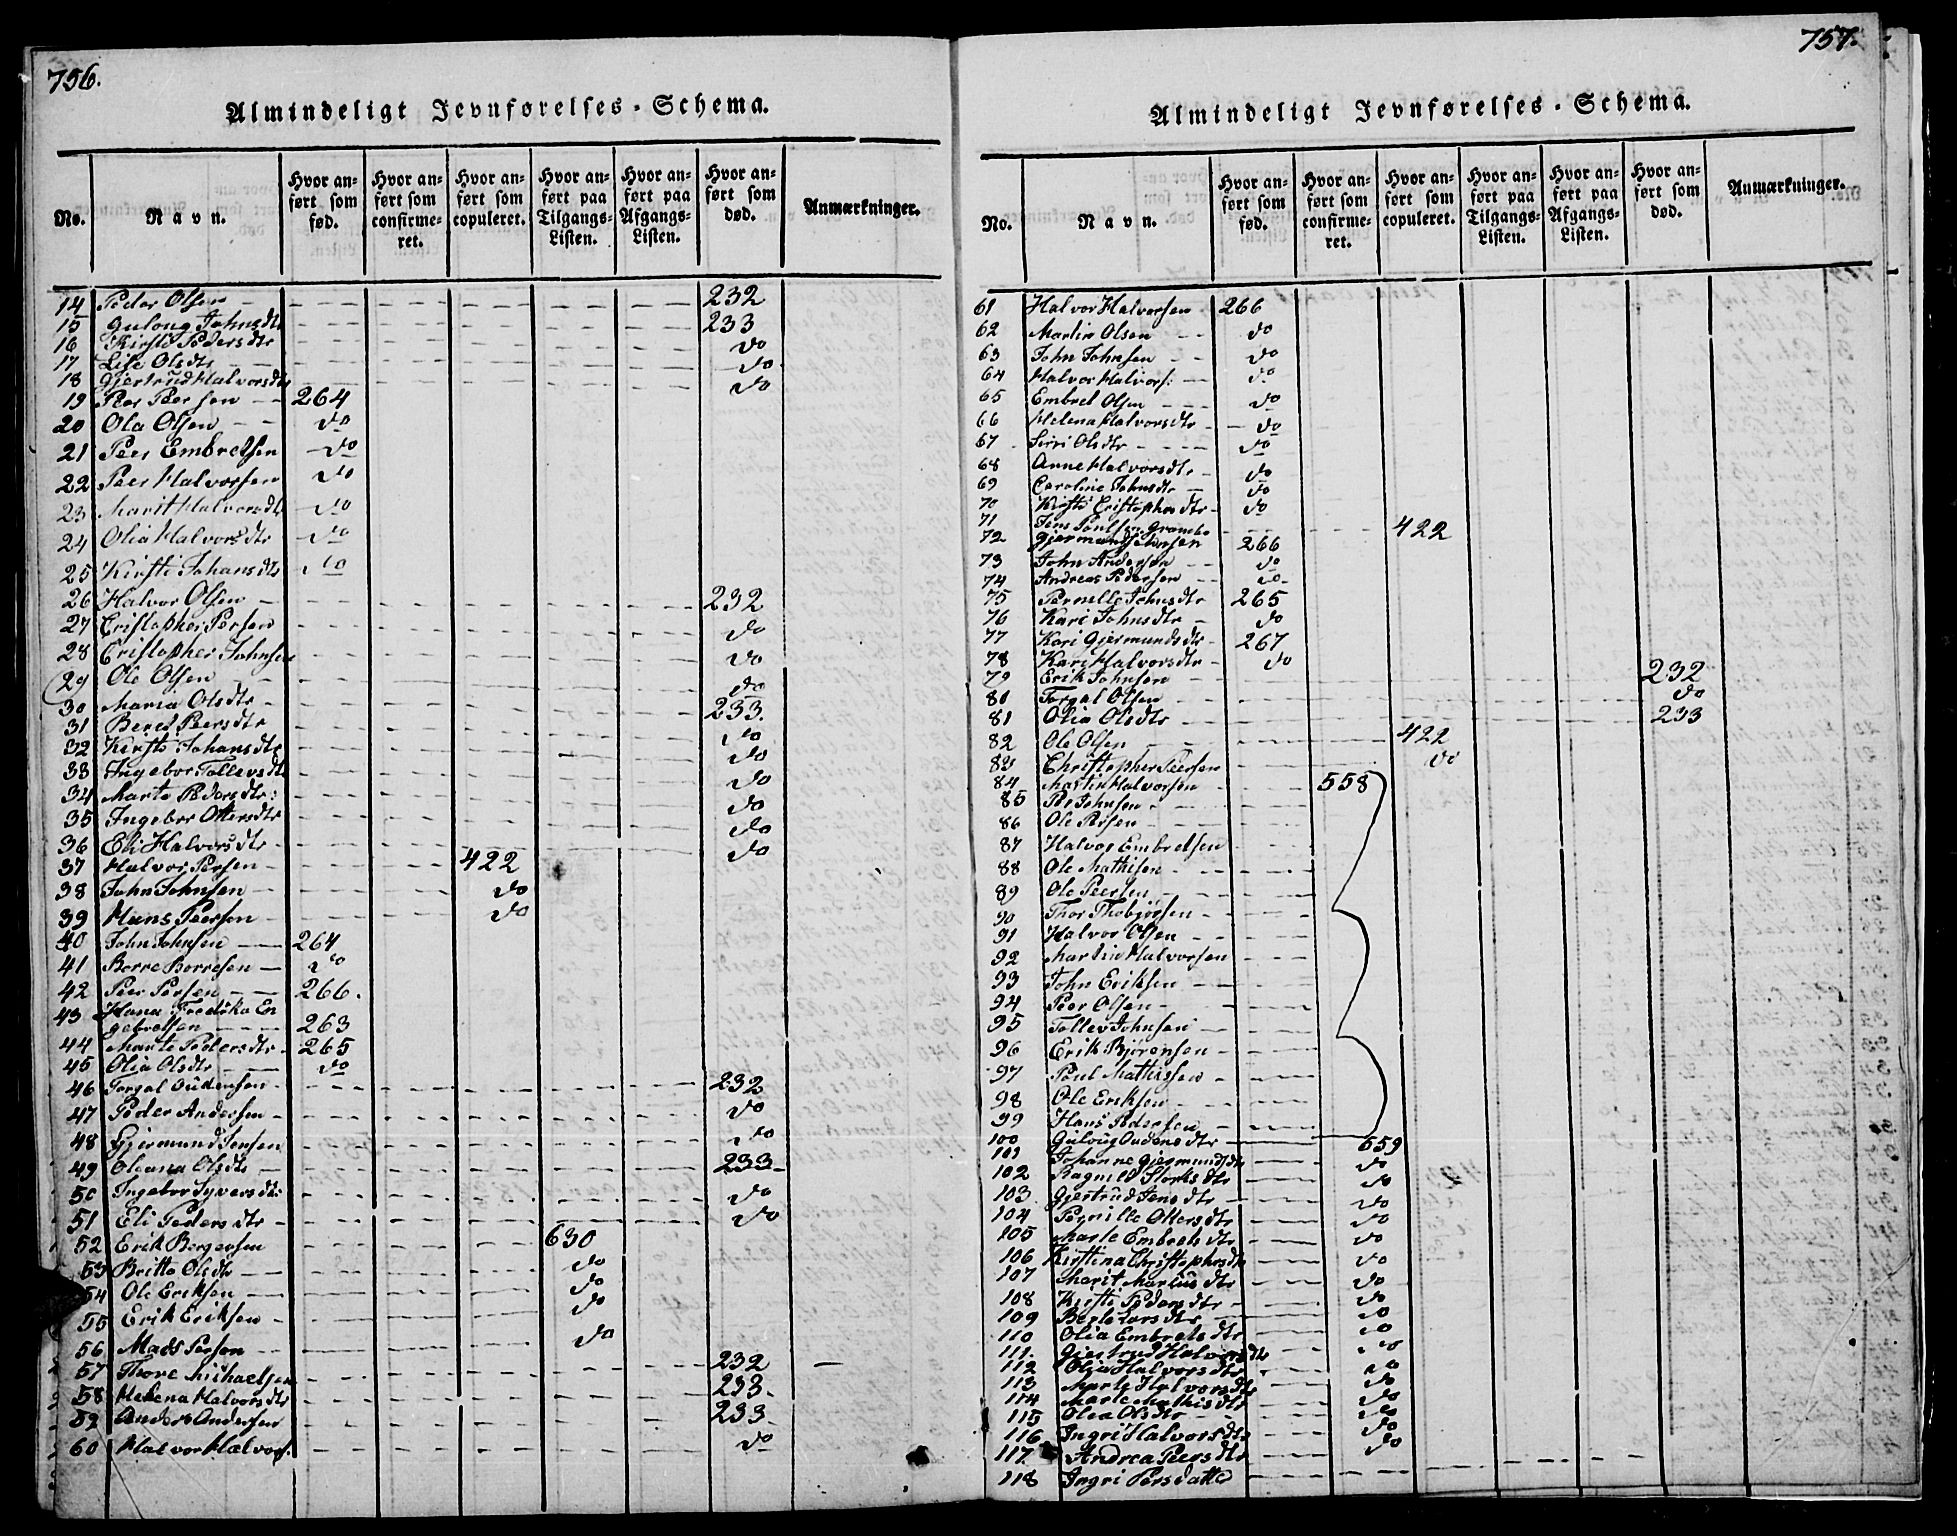 756.
Almindeligt Jevnførelses-Schema.
No. Navn. Hvor anført som fød. Hvor anført som confirmeret. Hvor anført som copuleret. Hvor anført paa Tilgangs-Listen. Hvor anført paa Afgangs-Listen. Hvor anført som død. Anmærkninger.
14 Peder Olsen 232
15 Gulong Johnsdtr 233
16 Kirsti Pedersdtr do
17 Lise Olsdtr do
18 Gjertrud Halvorsdtr do
19 Peer Peersen 264
20 Ola Olsen do
21 Peer Embretsen do
22 Peer Halvorsen do
23 Marit Halvorsdtr do
24 Olia Halvorsdtr do
25 Kirsti Johansdtr do
26 Halvor Olsen 232
27 Cristopher Persen do
28 Cristopher Johnsen do
29 Ole Olsen do
30 Maria Olsdtr 233.
31 Beret Peersdtr do
32 Kirsti Johansdtr do
33 Ingebor Tollevsdtr do
34 Marte Pedersdtr: do
35 Ingebor Ottersdtr do
36 Eli Halvorsdtr do
37 Halvor Persen 422
38 John Johnsen do
39 Hans Peersen do
40 John Johnsen 264
41 Borre Borresen do
42 Peer Persen 266.
43 Hana Fredrika En
gebretsen 263
44 Marte Pedersdtr 265
45 Olia Olsdtr do
46 Torgal Oudensen 232
47 Peder Andersen do
48 Gjermund Jensen do
49 Oleana Olsdtr 233
50 Ingebor Syversdtr do
51 Eli Pedersdtr do
52 Erik Bergersen 630
53 Britta Olsdtr do
54 Ole Eriksen do
55 Erik Eriksen do
56 Mads Persen do
57 Thore Michaelsen 232
58 Helena Halvorsdtr 233.
59 Anders Andersen 233
60 Halvor Halvors: do
757.
Almindeligt Jevnførelses-Schema.
No. Navn. Hvor anført som fød. Hvor anført som confirmeret. Hvor anført som copuleret. Hvor anført paa Tilgangs-Listen. Hvor anført paa Afgangs-Listen. Hvor anført som død. Anmærkninger.
61 Halvor Halvorsen 266
62 Martin Olsen do
63 John Johnsen do
64 Halvor Halvors: do
65 Embret Olsen do
66 Helena Halvorsdtr do
67 Sirri Olsdtr do
68 Anne Halvorsdtr do
69 Caroline Johnsdtr do
70 Kirsti Cristophersdtr do
71 Jens Poulsen 422
72 Gjermund Johnsen 266
73 John Andersen do
74 Andreas Pedersen do
75 Pernille Johnsdtr 265
76 Kari Johnsdtr do
77 Kari Gjermundsdtr 267
78 Kari Halvorsdtr do
79 Erik Johnsen 232
80 Torgal Olsen do
81 Olia Olsdtr 233
82 Ole Olsen 422
83 Christopher Peersen do
84 Martin Halvorsen 558
85 Per Johnsen
86 Ole Persen
87 Halvor Embretsen
88 Ole Mathisen
89 Ole Peersen
90 Thor Thobjørsen
91 Halvor Olsen
92 Martin Halvorsen
93 John Eriksen
94 Peer Olsen
95 Tollev Johnsen
96 Erik Bjørensen
97 Poul Mathissen
98 Ole Eriksen
99 Hans Pedersen
100 Gulvig Oudensdtr 559
101 Johanne Gjermundsdtr do
102 Ragnild Storksdtr do
103 Gjertrud Jensdtr do
104 Pernille Ottersdtr do
105 Marte Embretsdtr do
106 Kirstina Christophersdtr do
107 Marit Martinsdtr do
108 Kirsti Pedersdtr do
109 Berte Larsdtr do
110 Olia Embretsdtr do
111. Gjertrud Halvorsdtr do
112 Olia Halvorsdtr do
113 Marte Halvorsdtr do
114 Marte Mathisdtr do
115 Olea Olsdtr do
116 Ingri Halvorsdtr do
117 Andrea Peersdtr do
118 Ingri Persdatte